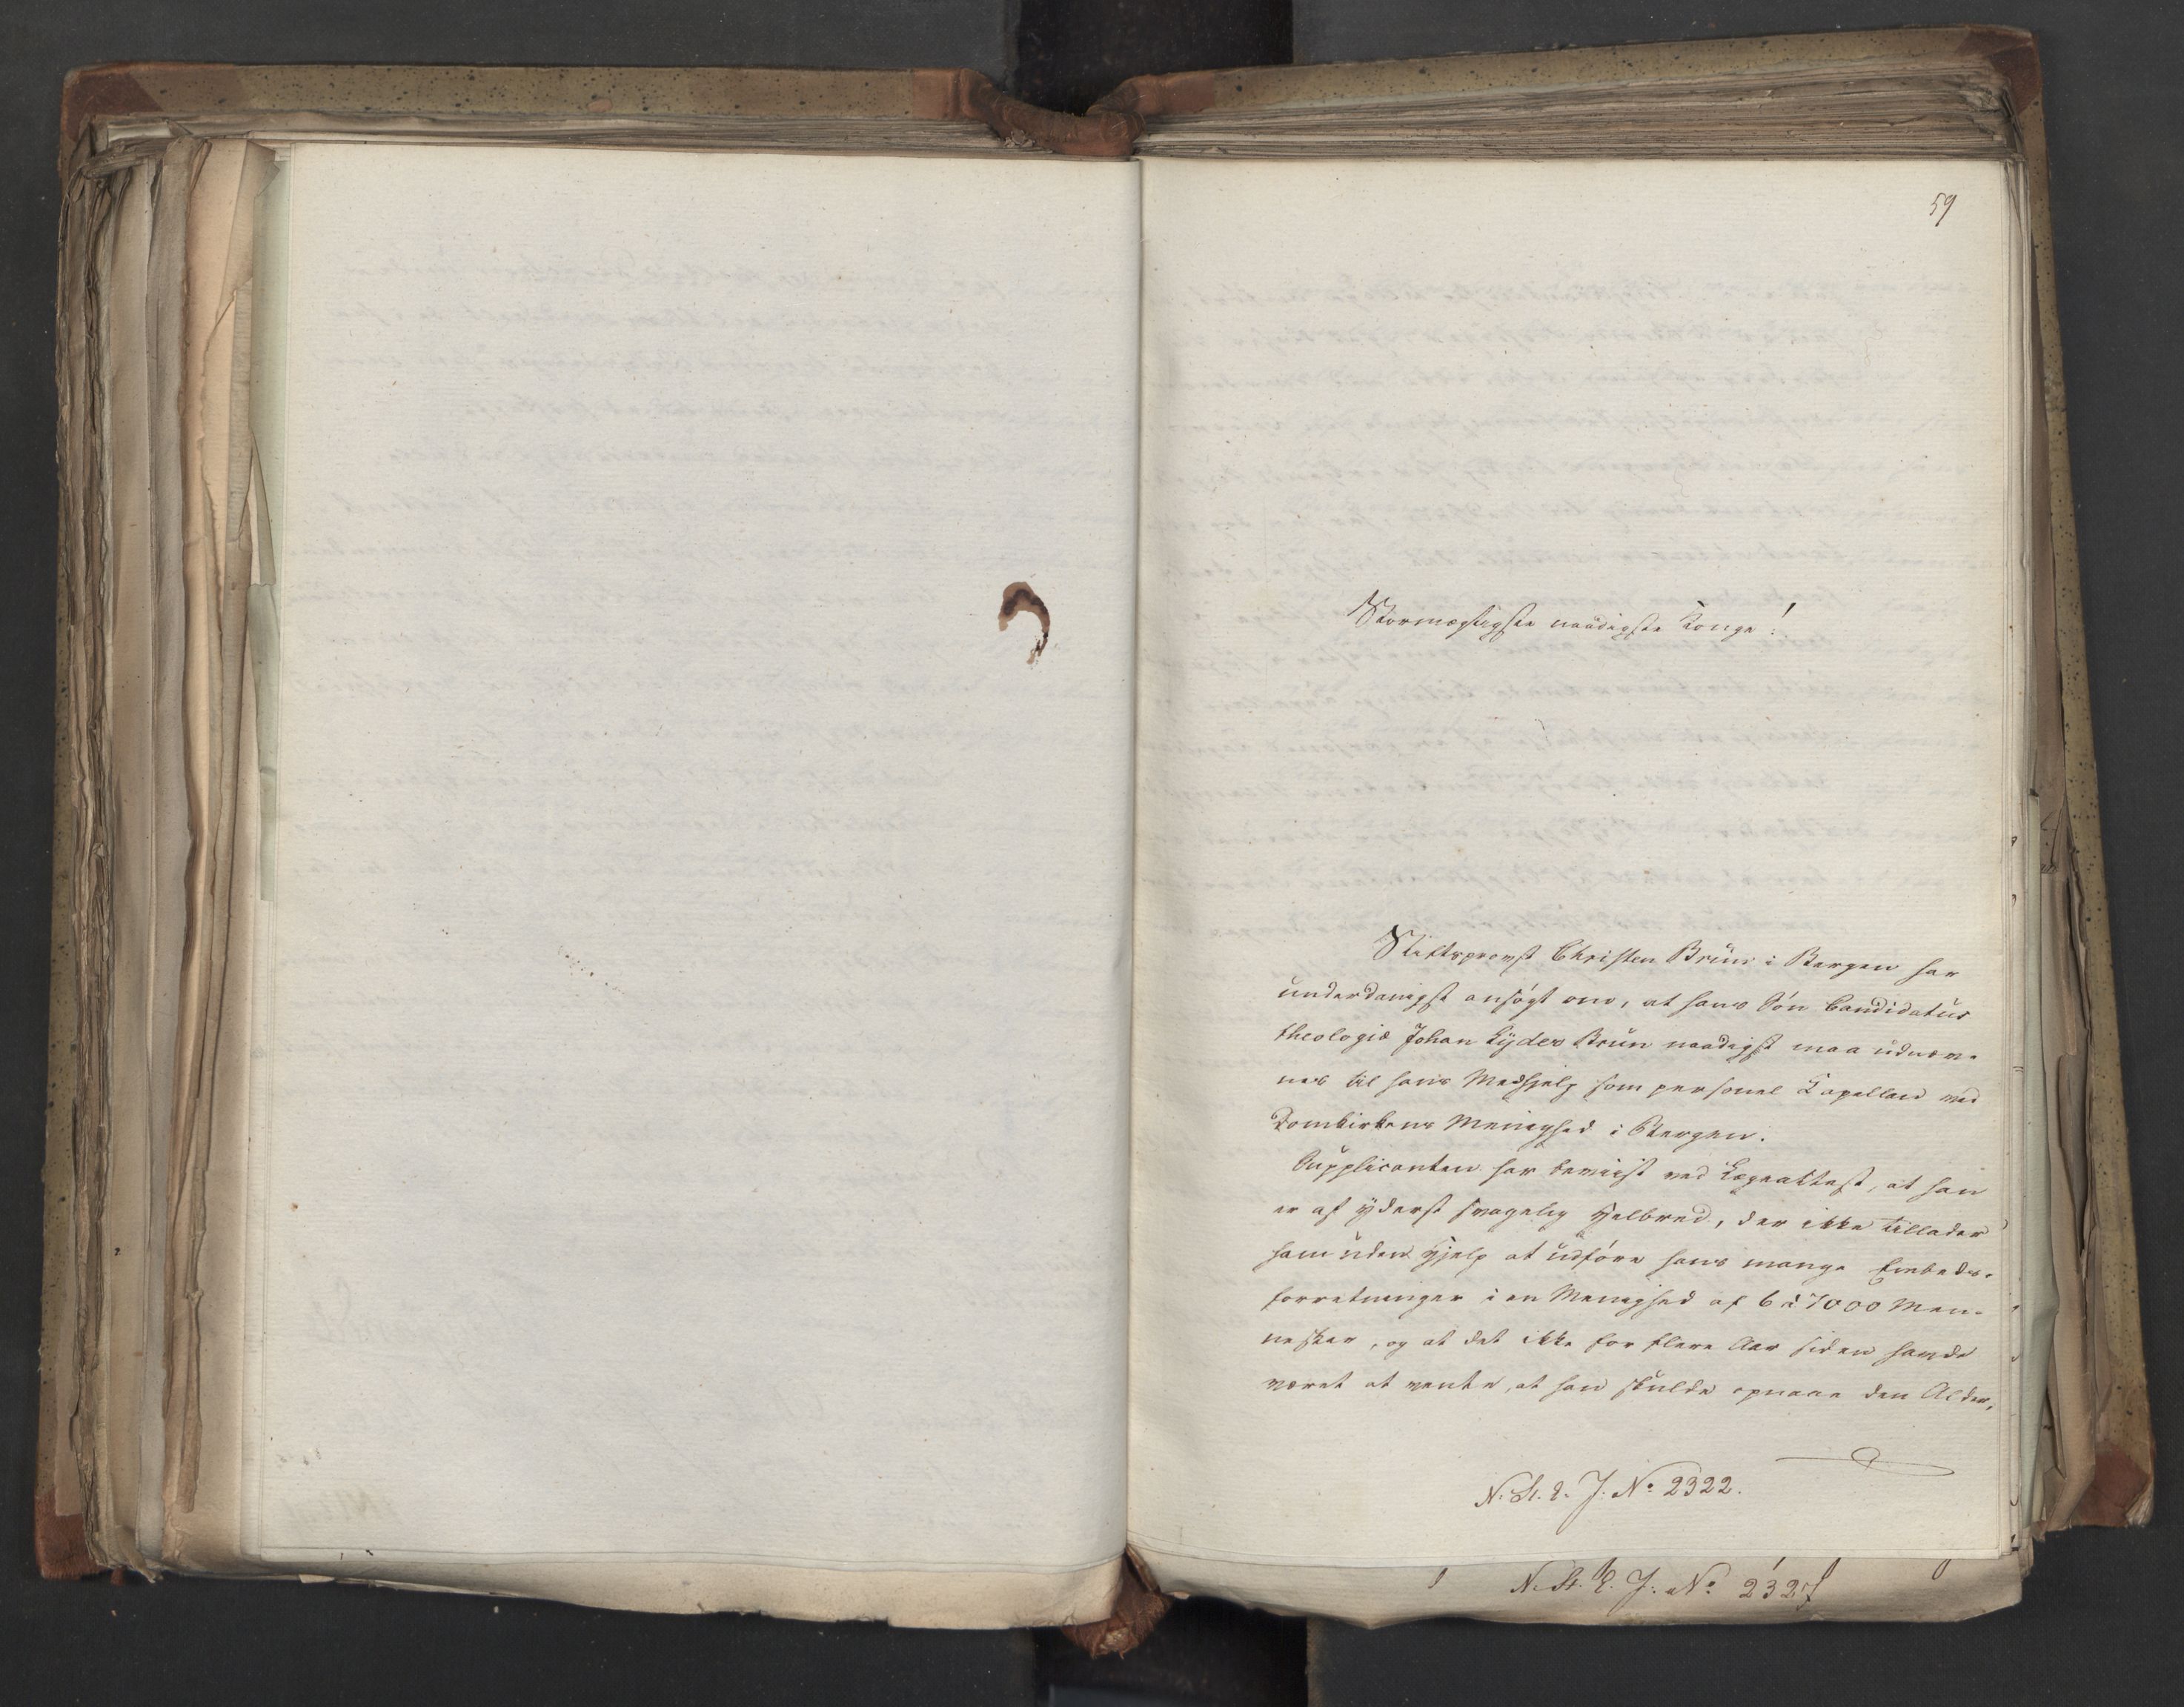 59
Stormægtigste naadigste Konge!
Stiftsprovst Christen Brun i Bergen har
underdanigst ansøgt om, at hans Søn Candidatus
theologiæ Johan Lyder Brun naadigst maa udnæv-
nes til hans Medhjelp som personel Kapellan ved
Domkirkens Menighed i Bergen.
Supplicanten har beviist ved Lægeattest, at han
er af yderst svagelig Helbred, der ikke tillader
ham uden Hjelp at udføre hans mange Embeds-
forretninger i en Menighed af 6 à 7000 Men-
nesker, og at det ikke for flere Aar siden havde
været at vente, at han skulde opnaae den Alder,
N. St. E. J. No 2322.
N. St. E. J. No